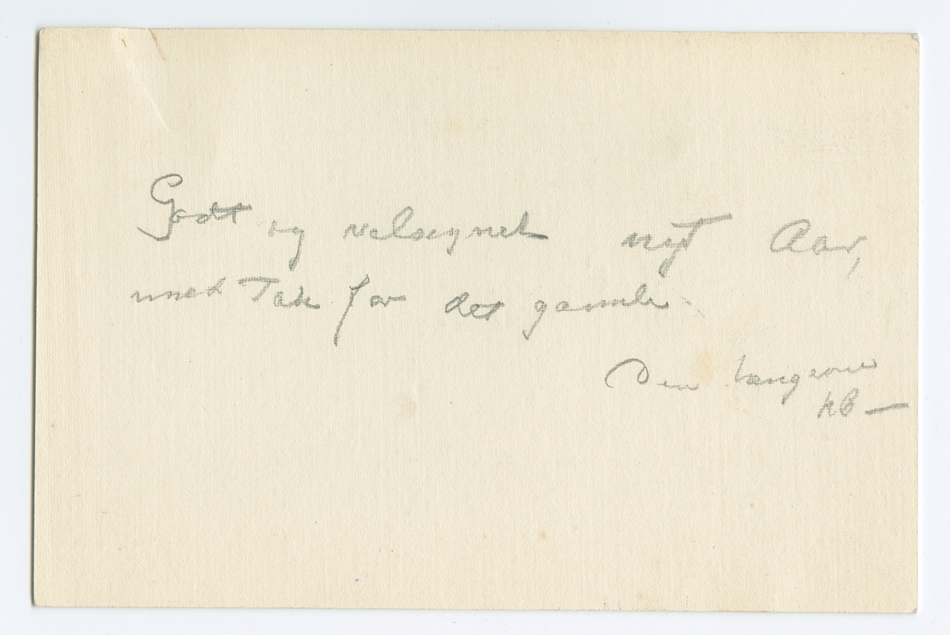 Godt og velsignet nyt Aar,
med Tak for det gamle
Den
KB —